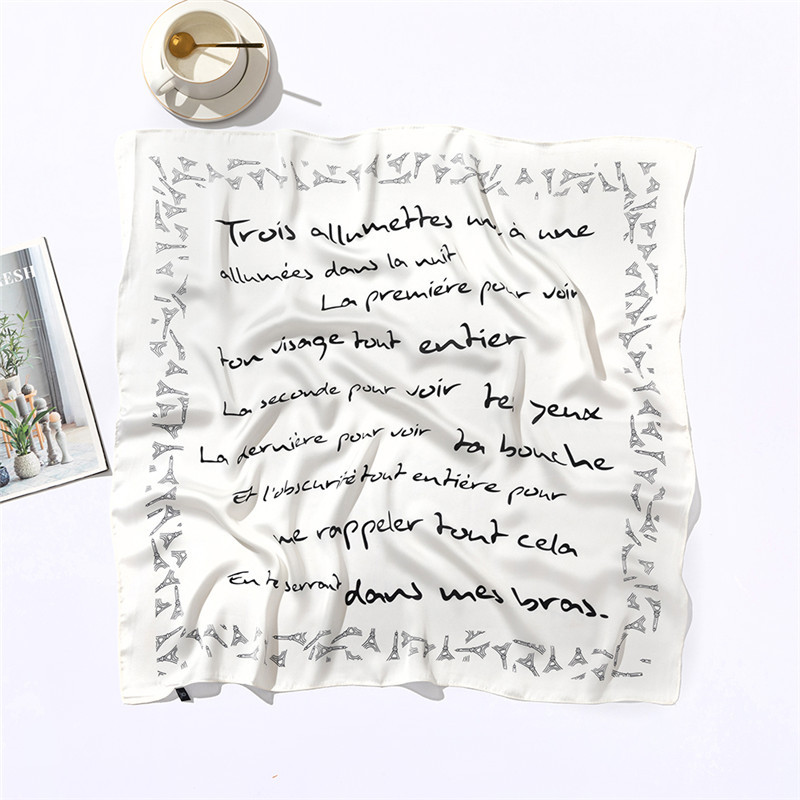 RESH
Trois allumettes un, à une
allumées dans la nuit
La première pour voir
ton visage tout entier
La seconde pour voir te yeux
La dernière pour voir ta bouche
Et l'obscurité tout entière pour
me rappeler tout cela
En te serrant dans mes bras.